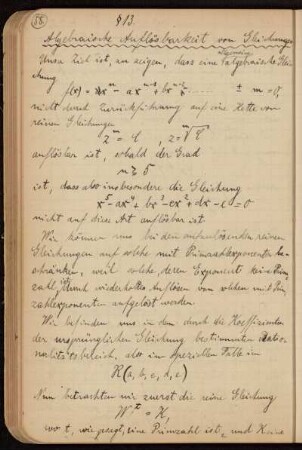 58.
§ 13.
Algebraische Auflösbarkeit von Gleichungen
Unser Ziel ist, zu zeigen, dass eine algebraische Gleichung
f(x) = x^n - ax^{n-1} + bx^{n-2} ..... ± m = 0,
nicht durch Zurückführung auf eine Kette von
reinen Gleichungen
z^m = q, z = \sqrt[m]{q}
auflösbar ist, sobald der Grad
n ≥ 5
ist, dass also insbesondere die Gleichung
x^5 - ax^4 + bx^3 - cx^2 + dx - e = 0
nicht auf diese Art auflösbar ist.
Wir können uns bei den aufzulösenden reinen
Gleichungen auf solche mit Primzahlexponenten be-
schränken, weil solche, deren Exponent keine Prim-
zahl ist, durch wiederholtes Auflösen von solchen mit Prim-
zahlexponenten aufgelöst werden.
Wir befinden uns in dem durch die Koeffizienten
der ursprünglichen Gleichung bestimmten Ratio-
nalitätsbereich, also im speziellen Falle im
R(a, b, c, d, e)
Nun betrachten wir zuerst die reine Gleichung
W^t = K,
wo t, wie gesagt, eine Primzahl ist, und K eine